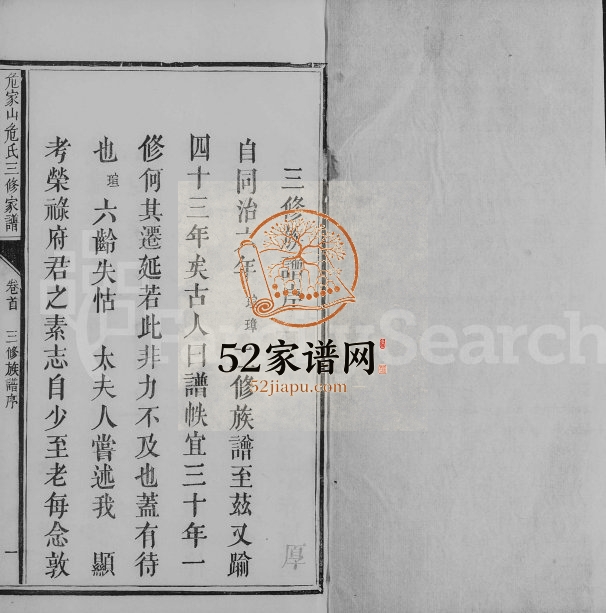 三修族譜序
自同治十年 璋 修族譜至茲又踰
四十三年矣古人曰譜帙宜三十年一
修何其遷延若此非力不及也蓋有待
也瑄六齡失怙 太夫人嘗述我 顯
考榮祿府君之素志自少至老每念敦
危家山危氏三修家譜
卷首
三修族譜序
一
厚
52家谱网
52jiapu.com
Search